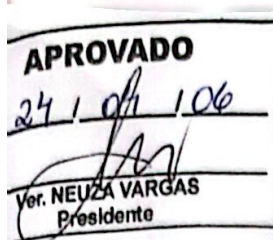 APROVADO
24 / 04 / 06
Ver. NEUZA VARGAS
Presidente